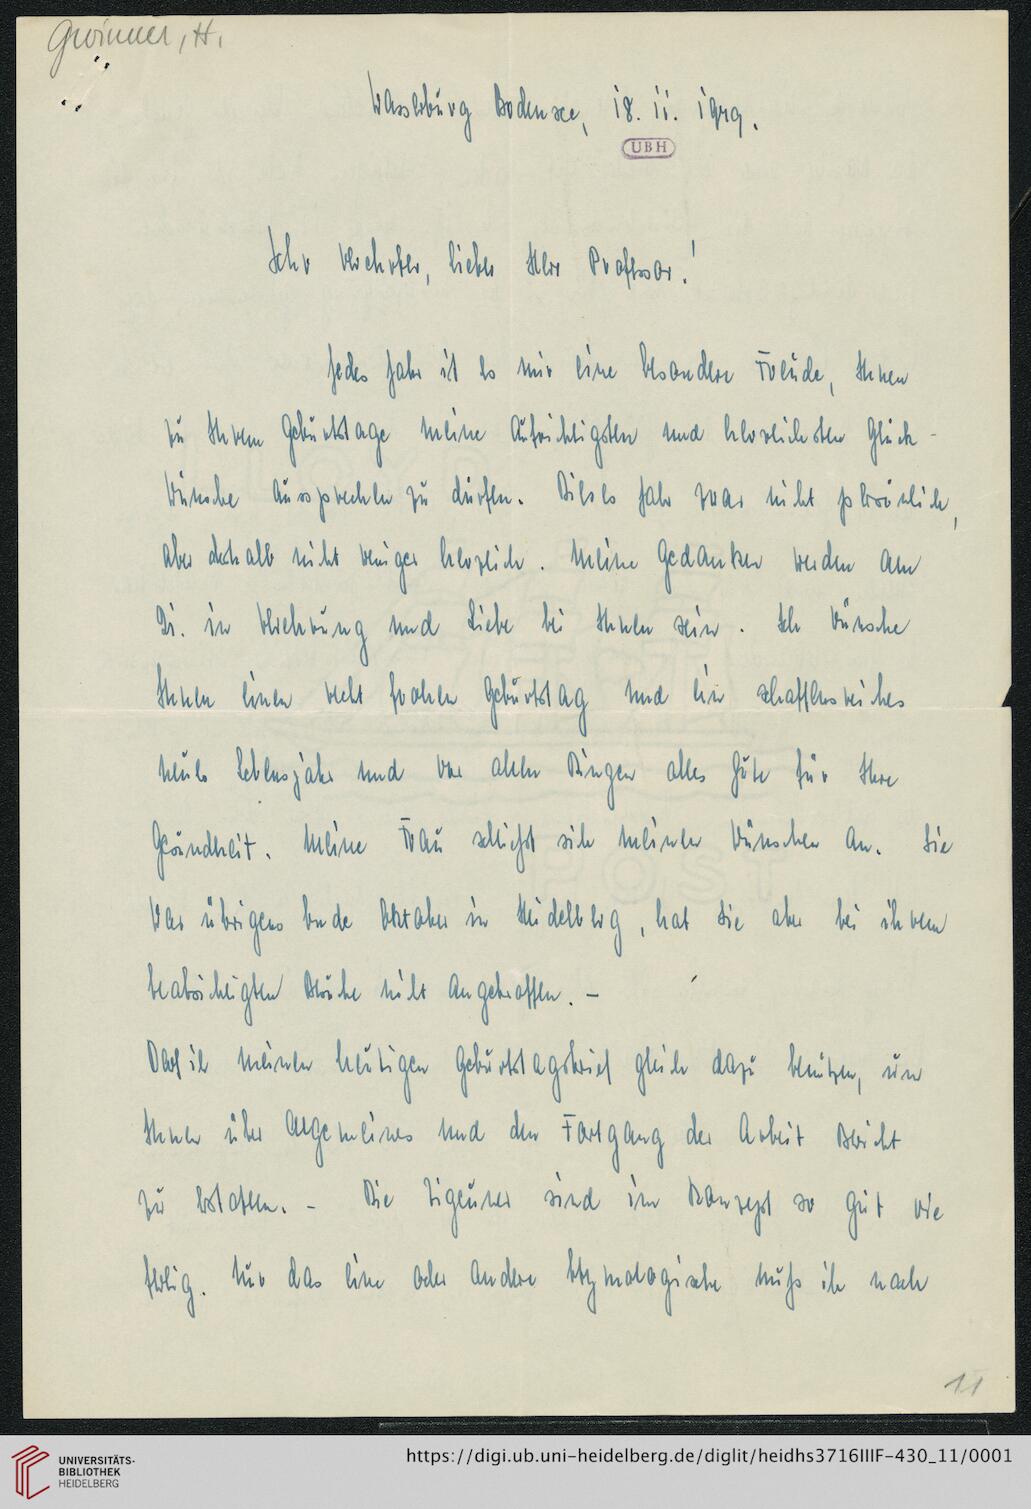 Gwinner, H.
Wasserburg Bodensee, 18. 11. 1949.
UBH
Sehr verehrter, lieber Herr Professor!
Jedes Jahr ist es mir eine besondere Freude, Ihnen
zu Ihrem Geburtstage meine aufrichtigsten und herzlichsten Glück-
wünsche aussprechen zu dürfen. Dieses Jahr zwar nicht persönlich,
aber deshalb nicht weniger herzlich. Meine Gedanken werden am
Di. in Verehrung und Liebe bei Ihnen sein. Ich wünsche
Ihnen einen recht frohen Geburtstag und ein schaffensreiches
neues Lebensjahr und vor allen Dingen alles Gute für Ihre
Gesundheit. Meine Frau schließt sich meinen Wünschen an. Sie
war übrigens Ende Oktober in Heidelberg, hat Sie aber bei ihrem
beabsichtigten Besuche nicht angetroffen. –
Darf ich meinen heutigen Geburtstagsbrief gleich dazu benützen, um
Ihnen über Allgemeines und den Fortgang der Arbeit Bericht
zu erstatten. – Die Zigeuner sind im Konzept so gut wie
fertig. Nur das eine oder andere Etymologische muß ich noch
11
UNIVERSITÄTS-
BIBLIOTHEK
HEIDELBERG
https://digi.ub.uni-heidelberg.de/diglit/heidhs3716IIIF-430_11/0001